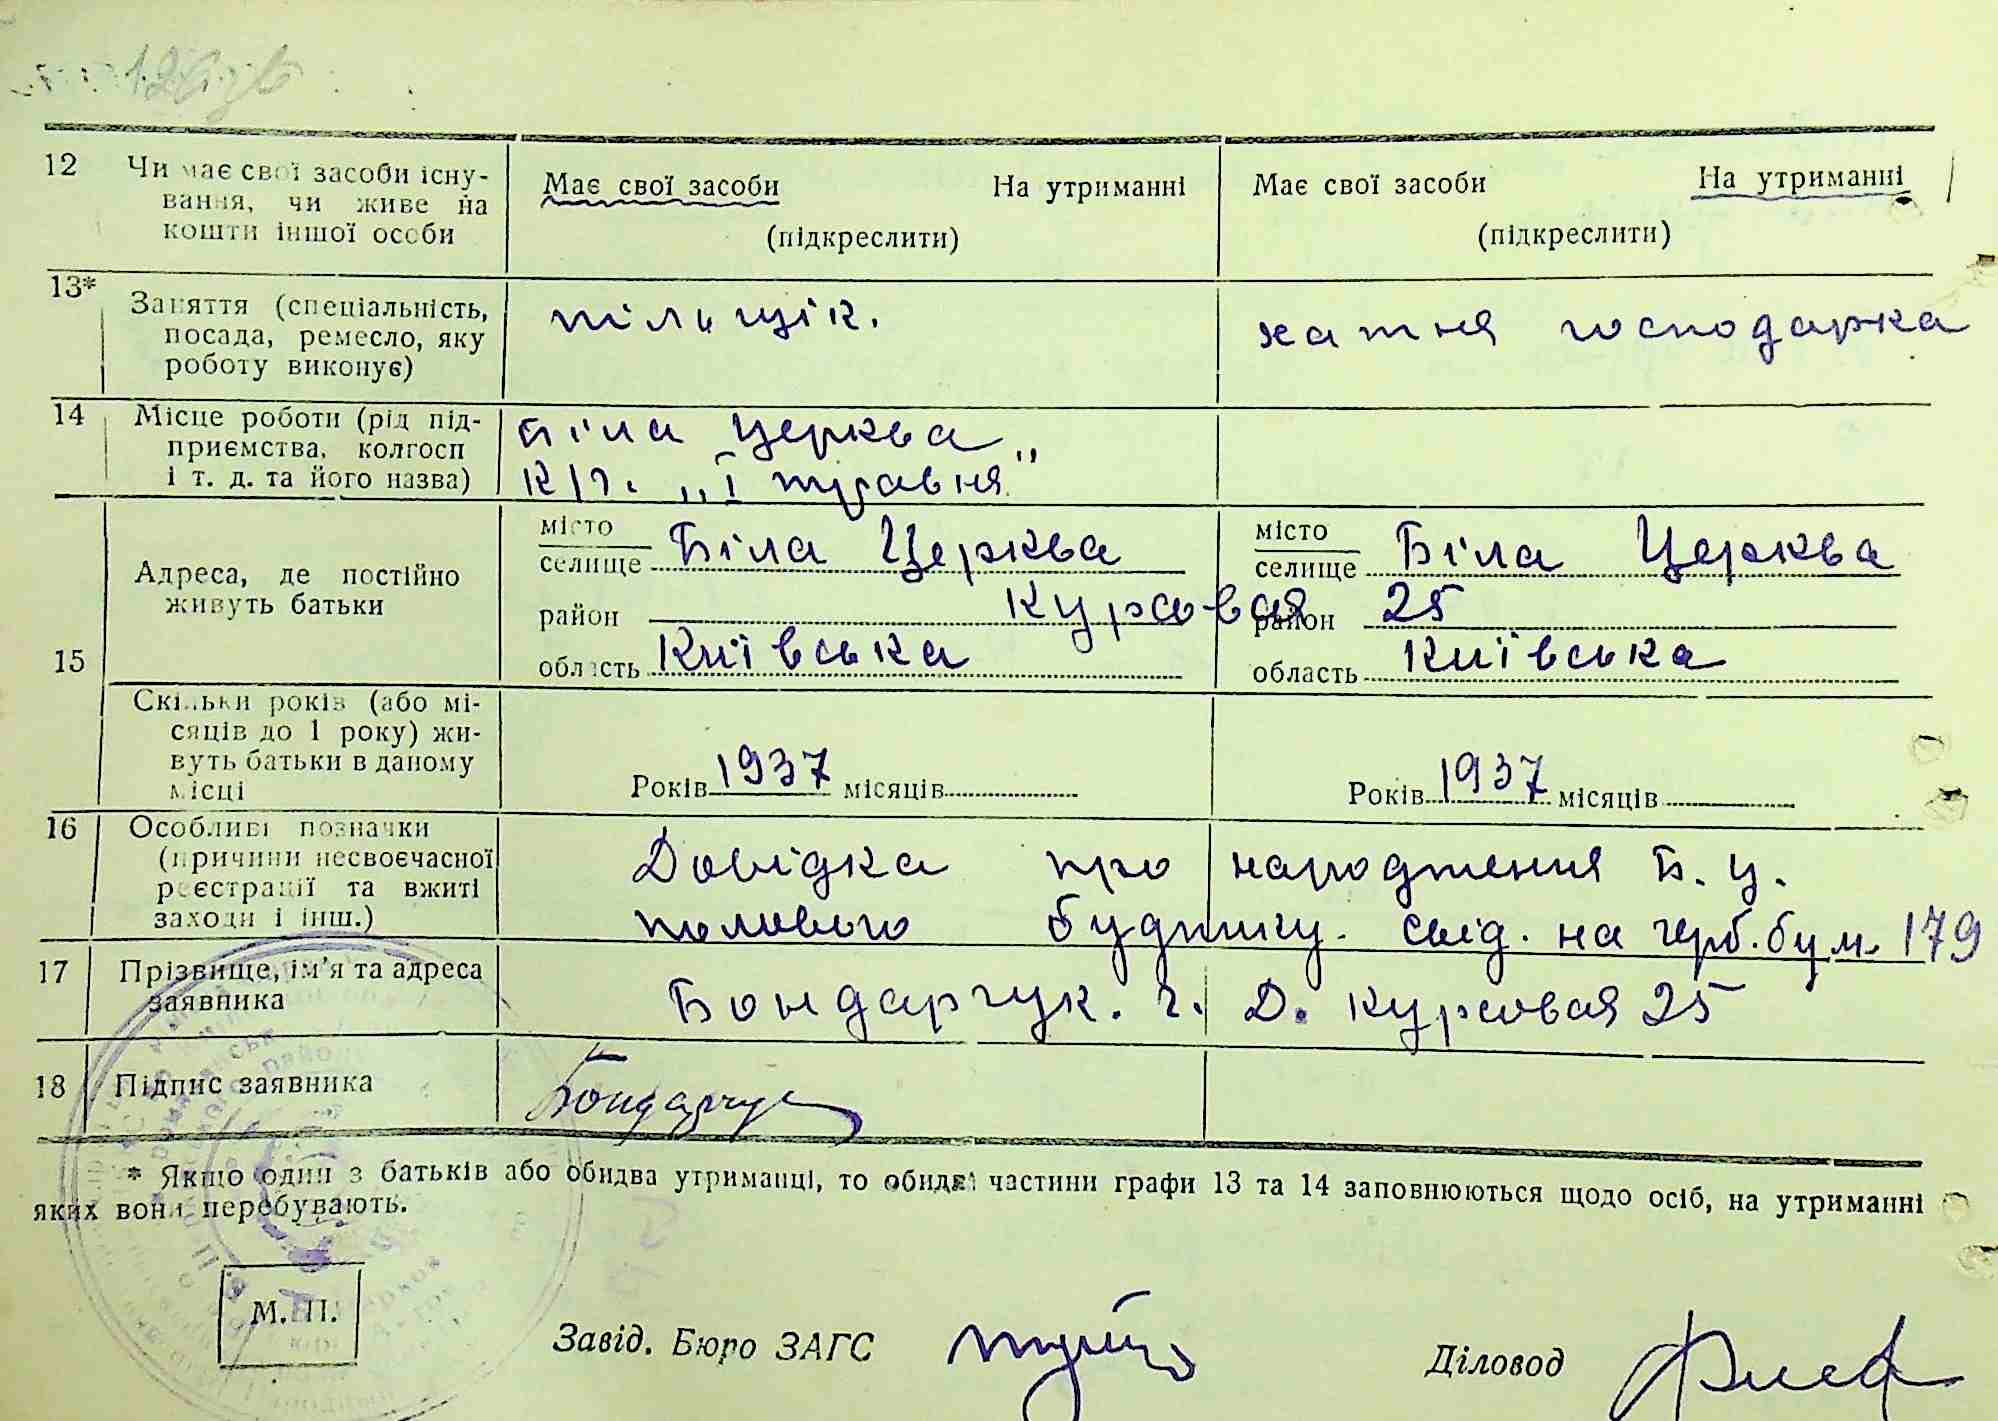 12 Чи має свої засоби існу-
вання, чи живе на
кошти іншої особи
Має свої засоби На утриманні
(підкреслити)
Має свої засоби На утриманні
(підкреслити)
13* Заняття (спеціальність,
посада, ремесло, яку
роботу виконує)
пільщік.
хатня господарка
14 Місце роботи (рід під-
приємства, колгосп
і т. д. та його назва)
Біла Церква
к/г. „І травня"
15 Адреса, де постійно
живуть батьки
місто
селище Біла Церква
район Курсовая
область Київська
місто
селище Біла Церква
район 25
область Київська
Скільки років (або мі-
сяців до 1 року) жи-
вуть батьки в даному
місці
Років 1937 місяців
Років 1937 місяців
16 Особливі позначки
(причини несвоєчасної
реєстрації та вжиті
заходи і інш.)
Довідка про народження Б. Ц.
полового будинку. свід. на герб. бум. 179
17 Прізвище, ім'я та адреса
заявника
Бондарчук. Г. Д. Курсовая 25
18 Підпис заявника
Бондарчук
* Якщо один з батьків або обидва утриманці, то обидві частини графи 13 та 14 заповнюються щодо осіб, на утриманні
яких вони перебувають.
М. П.
Завід. Бюро ЗАГС
Діловод